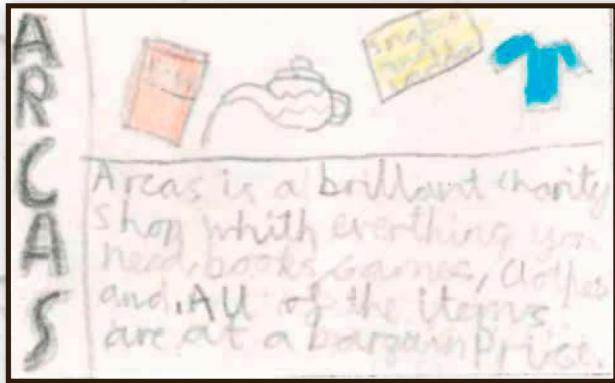 ARCAS
Arcas is a brillant charity
shop whith everthing you
need, books, Games, Clothes
and. All of the items
are at a bargain Price.